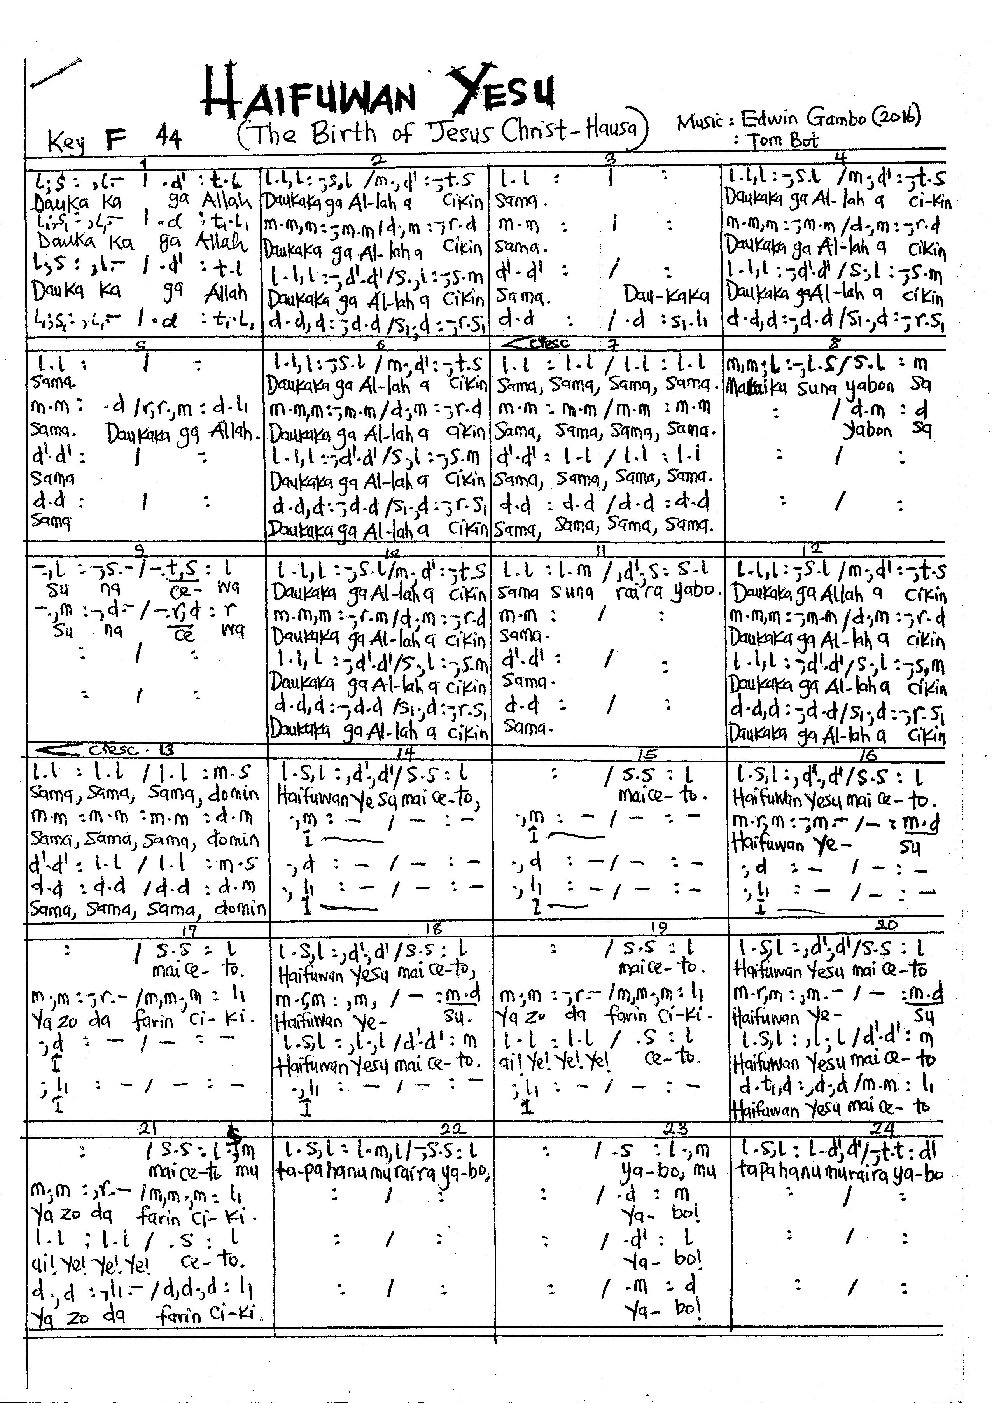 HAIFUWAN YESU
(The Birth of Jesus Christ-Hausa)
Key F 44
Music: Edwin Gambo (2016)
: Tom Bot
1 2 3 4
l,;s : ,l.- / .d' : t.l
Dauka ka ga Allah
l,;s, : ,l,.- / .d : t,.l,
Dauka ka ga Allah
l,;s : ,l.- / .d' : t.l
Dauka ka ga Allah
l,;s, : ,l,.- / .d : t,.l,
l.l,l :-,s.l /m.,d' :-,t.s
Daukaka ga Al-lah a cikin
m.m,m :-,m.m/d.,m :-,r.d
Daukaka ga Al-lah a cikin
l.l,l :-,d'.d'/s.,l :-,s.m
Daukaka ga Al-lah a cikin
d.d,d :-,d.d /s,.,d :-,r.s,
l.l : / :
Sama.
m.m : / :
Sama.
d'.d' : / :
Sama. Dau-kaka
d.d : / .d : s,.l,
l.l,l :-,s.l /m.,d' :-,t.s
Daukaka ga Al-lah a ci-kin
m.m,m :-,m.m /d.,m :-,r.d
Daukaka ga Al-lah a cikin
l.l,l :-,d'.d' /s.,l :-,s.m
Daukaka ga Al-lah a cikin
d.d,d :-,d.d /s,.,d :-,r.s,
5 6 cresc 7 8
l.l : / :
Sama.
m.m : .d /r,r.,m : d.l,
Sama. Daukaka ga Allah.
d'.d' : / :
Sama
d.d : / :
Sama
l.l,l :-,s.l /m.,d' :-,t.s
Daukaka ga Al-lah a cikin
m.m,m :-,m.m /d.,m :-,r.d
Daukaka ga Al-lah a cikin
l.l,l :-,d'.d' /s.,l :-,s.m
Daukaka ga Al-lah a cikin
d.d,d :-,d.d /s,.,d :-,r.s,
Daukaka ga Al-lah a cikin
l.l : l.l / l.l : l.l
Sama, Sama, Sama, Sama.
m.m : m.m /m.m : m.m
Sama, Sama, Sama, Sama.
d'.d' : l.l / l.l : l.l
Sama, Sama, Sama, Sama.
d.d : d.d /d.d : d.d
Sama, Sama, Sama, Sama.
m,m.,l :-,l.s /s.l : m
Malaiku suna yabon sa
: / d.m : d
yabon sa
: / :
: / :
9 10 11 12
-.,l :-,s.- /-.t,s : l
su na ce- wa
-.,m :-,d.- /-.r,d : r
su na ce wa
: / :
: / :
l.l,l :-,s.l /m.,d' :-,t.s
Daukaka ga Al-lah a cikin
m.m,m :-,r.m /d.,m :-,r.d
Daukaka ga Al-lah a cikin
l.l,l :-,d'.d'/s.,l :-,s.m
Daukaka ga Al-lah a cikin
d.d,d :-,d.d /s,.,d :-,r.s,
Daukaka ga Al-lah a cikin
l.l : l.m / ,d'.,s : s.l
sama suna raira yabo.
m.m : / :
Sama.
d'.d' : / :
Sama.
d.d : / :
Sama.
l.l,l :-,s.l /m.,d' :-,t.s
Daukaka ga Allah a cikin
m.m,m :-,m.m /d.,m :-,r.d
Daukaka ga Al-lah a cikin
l.l,l :-,d'.d'/s.,l :-,s,m
Daukaka ga Al-lah a cikin
d.d,d :-,d.d /s,.,d :-,r.s,
Daukaka ga Al-lah a cikin
cresc. 13 14 15 16
l.l : l.l / l.l : m.s
Sama, Sama, Sama, domin
m.m : m.m : m.m : d.m
Sama, Sama, Sama, domin
d'.d' : l.l / l.l : m.s
d.d : d.d /d.d : d.m
Sama, Sama, Sama, domin
l.s,l :,d'.,d'/ s.s : l
Haifuwan Yesu mai ce-to,
-.,m : - / - : -
I
-.,d : - / - : -
-.,l, : - / - : -
I
: / s.s : l
mai ce-to.
-.,m : - / - : -
I
-.,d : - / - : -
-.,l, : - / - : -
I
l.s,l :,d'.,d'/s.s : l
Haifuwan Yesu mai ce-to.
m.r,m :-,m.- / - : m.d
Haifuwan Ye- su
-.,d : - / - : -
-.,l, : - / - : -
I
17 18 19 20
: / s.s : l
mai ce-to.
m,.m : -,r.- /m,m.,m : l,
Ya zo da farin Ci-ki.
-.,d : - / - : -
I
-.,l, : - / - : -
I
l.s,l :,d'.,d'/s.s : l
Haifuwan Yesu mai ce-to,
m.r,m : ,m, / - : m.d
Haifuwan Ye- su.
l.s,l :,l.,l /d'.d' : m
Haifuwan Yesu mai ce-to.
-.,l, : - / - : -
I
: / s.s : l
mai ce-to.
m,.m : -,r.- /m,m.,m : l,
Ya zo da farin Ci-ki.
l.l : l.l / .s : l
ai! Ye! Ye! Ye! ce-to.
-.,l, : - / - : -
I
l.s,l :,d'.,d'/s.s : l
Haifuwan Yesu mai ce-to
m.r,m : ,m.- / - : m.d
Haifuwan Ye- su
l.s,l :,l.,l /d'.d' : m
Haifuwan Yesu mai ce-to
d.t,,d :,d.,d /m.m : l,
Haifuwan Yesu mai ce-to
21 22 23 24
: / s.s : l.,m
mai ce-to mu
m,.m : ,r.- /m,m.,m : l,
Ya zo da farin Ci-ki.
l.l : l.l / .s : l
ai! Ye! Ye! Ye! ce-to.
d.,d : -,l,.- /d,d.,d : l,
Ya zo da farin Ci-Ki.
l.s,l : l.m,l /-,s.s : l
ta-pa hanu mu raira ya-bo,
: / :
: / :
: / :
: / .s : l.,m
ya-bo, mu
: / .d : m
Ya- bo!
: / .d' : l
Ya- bo!
: / .m : d
Ya- bo!
l.s,l : l.d',d'/-,t.t : d'
tapa hanu mu raira ya-bo
: / :
: / :
: / :